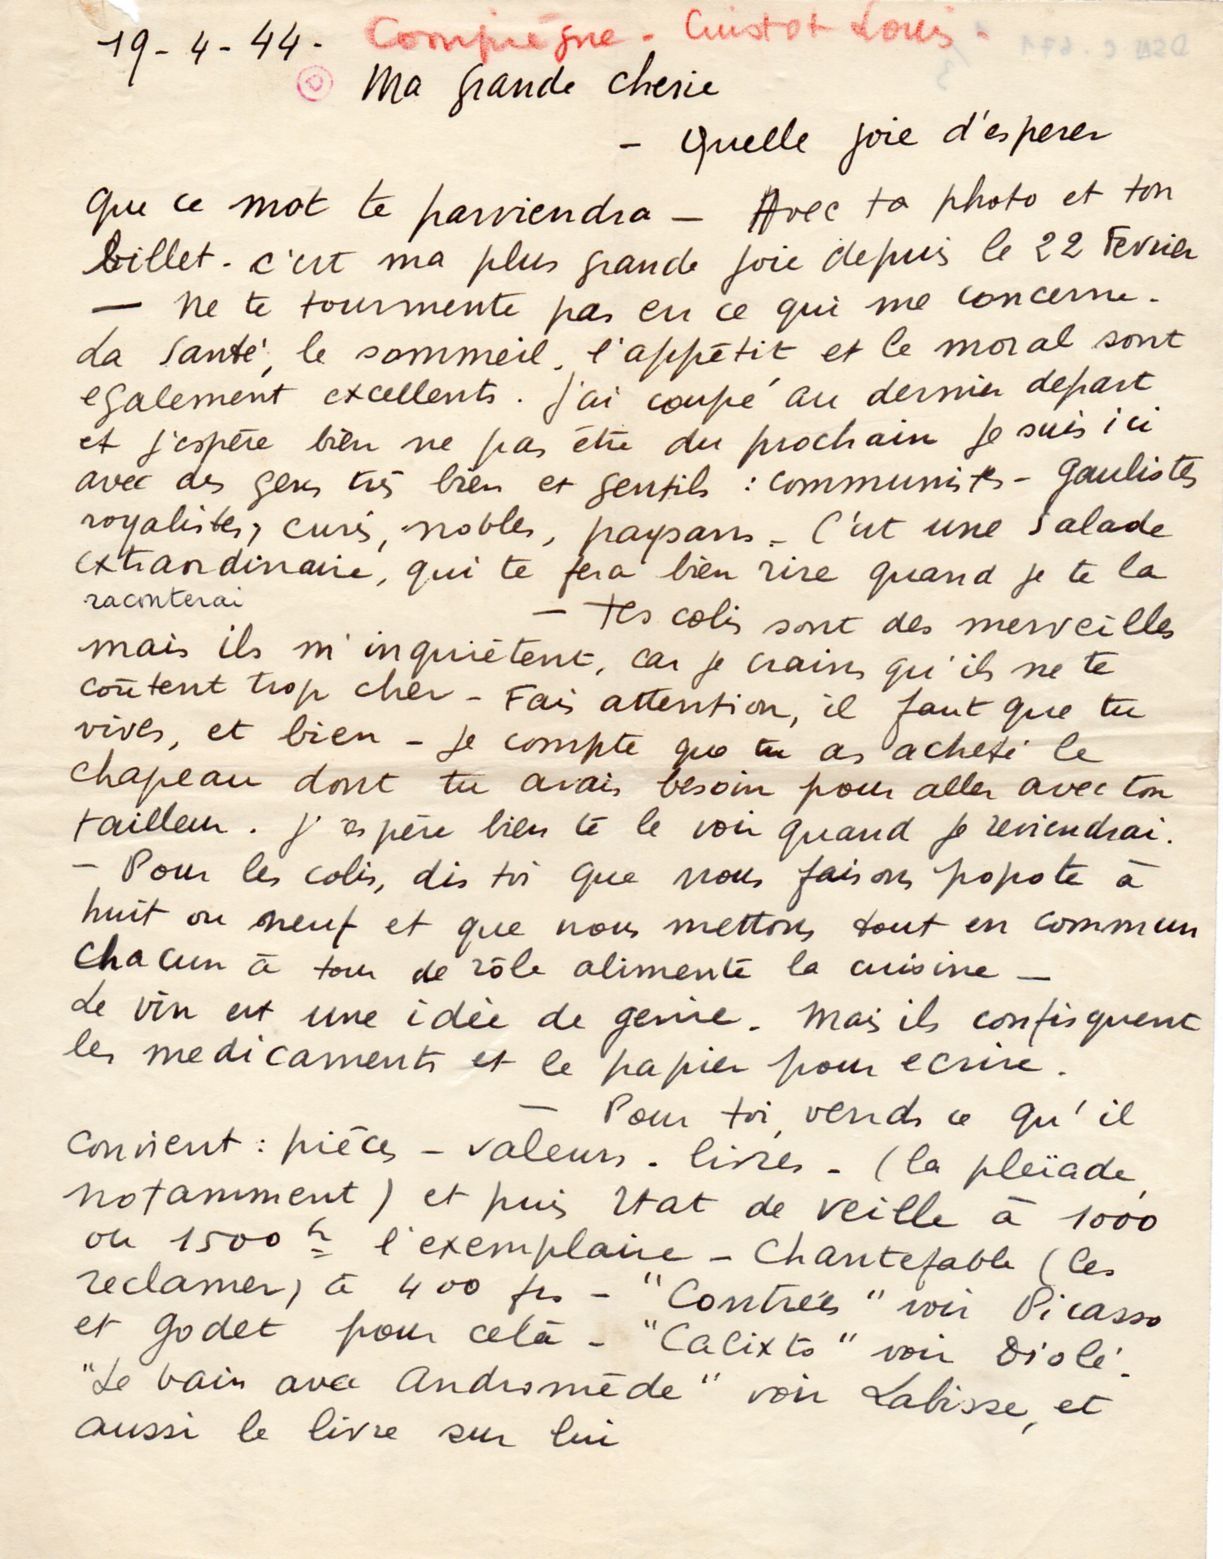 19-4-44- Compiègne - Cuistot Louis -
Ma grande cherie
- Quelle joie d'esperer
que ce mot te parviendra - Avec ta photo et ton
billet - c'est ma plus grande joie depuis le 22 Fevrier
- Ne te tourmente pas en ce qui me concerne -
La santé, le sommeil, l'appétit, et le moral sont
egalement excellents. J'ai coupé au dernier depart
et j'espère bien ne pas être du prochain Je suis ici
avec des gens très bien et gentils : communistes - gaulistes
royalistes, curés, nobles, paysans - C'est une salade
extraordinaire, qui te fera bien rire quand je te la
raconterai - Tes colis sont des merveilles
mais ils m'inquiètent, car je crains qu'ils ne te
coûtent trop cher - Fais attention, il faut que tu
vives, et bien - Je compte que tu as acheté le
chapeau dont tu avais besoin pour aller avec ton
tailleur. J'espère bien te le voir quand je reviendrai.
- Pour les colis, dis toi que nous faisons popote à
huit ou neuf et que nous mettons tout en commun
chacun à tour de rôle alimente la cuisine -
Le vin est une idée de genie. Mais ils confisquent
les medicaments et le papier pour ecrire.
- Pour toi, vends ce qu'il
convient : pièces - valeurs - livres - (la pleïade,
notamment) et puis Etat de Veille à 1000
ou 1500 fr l'exemplaire - Chantefable (les
reclamer) à 400 frs - "Contrées" voir Picasso
et Godet pour celà - "Calixto" voir Diolé -
"Le bain avec Andromède" voir Labisse, et
aussi le livre sur lui